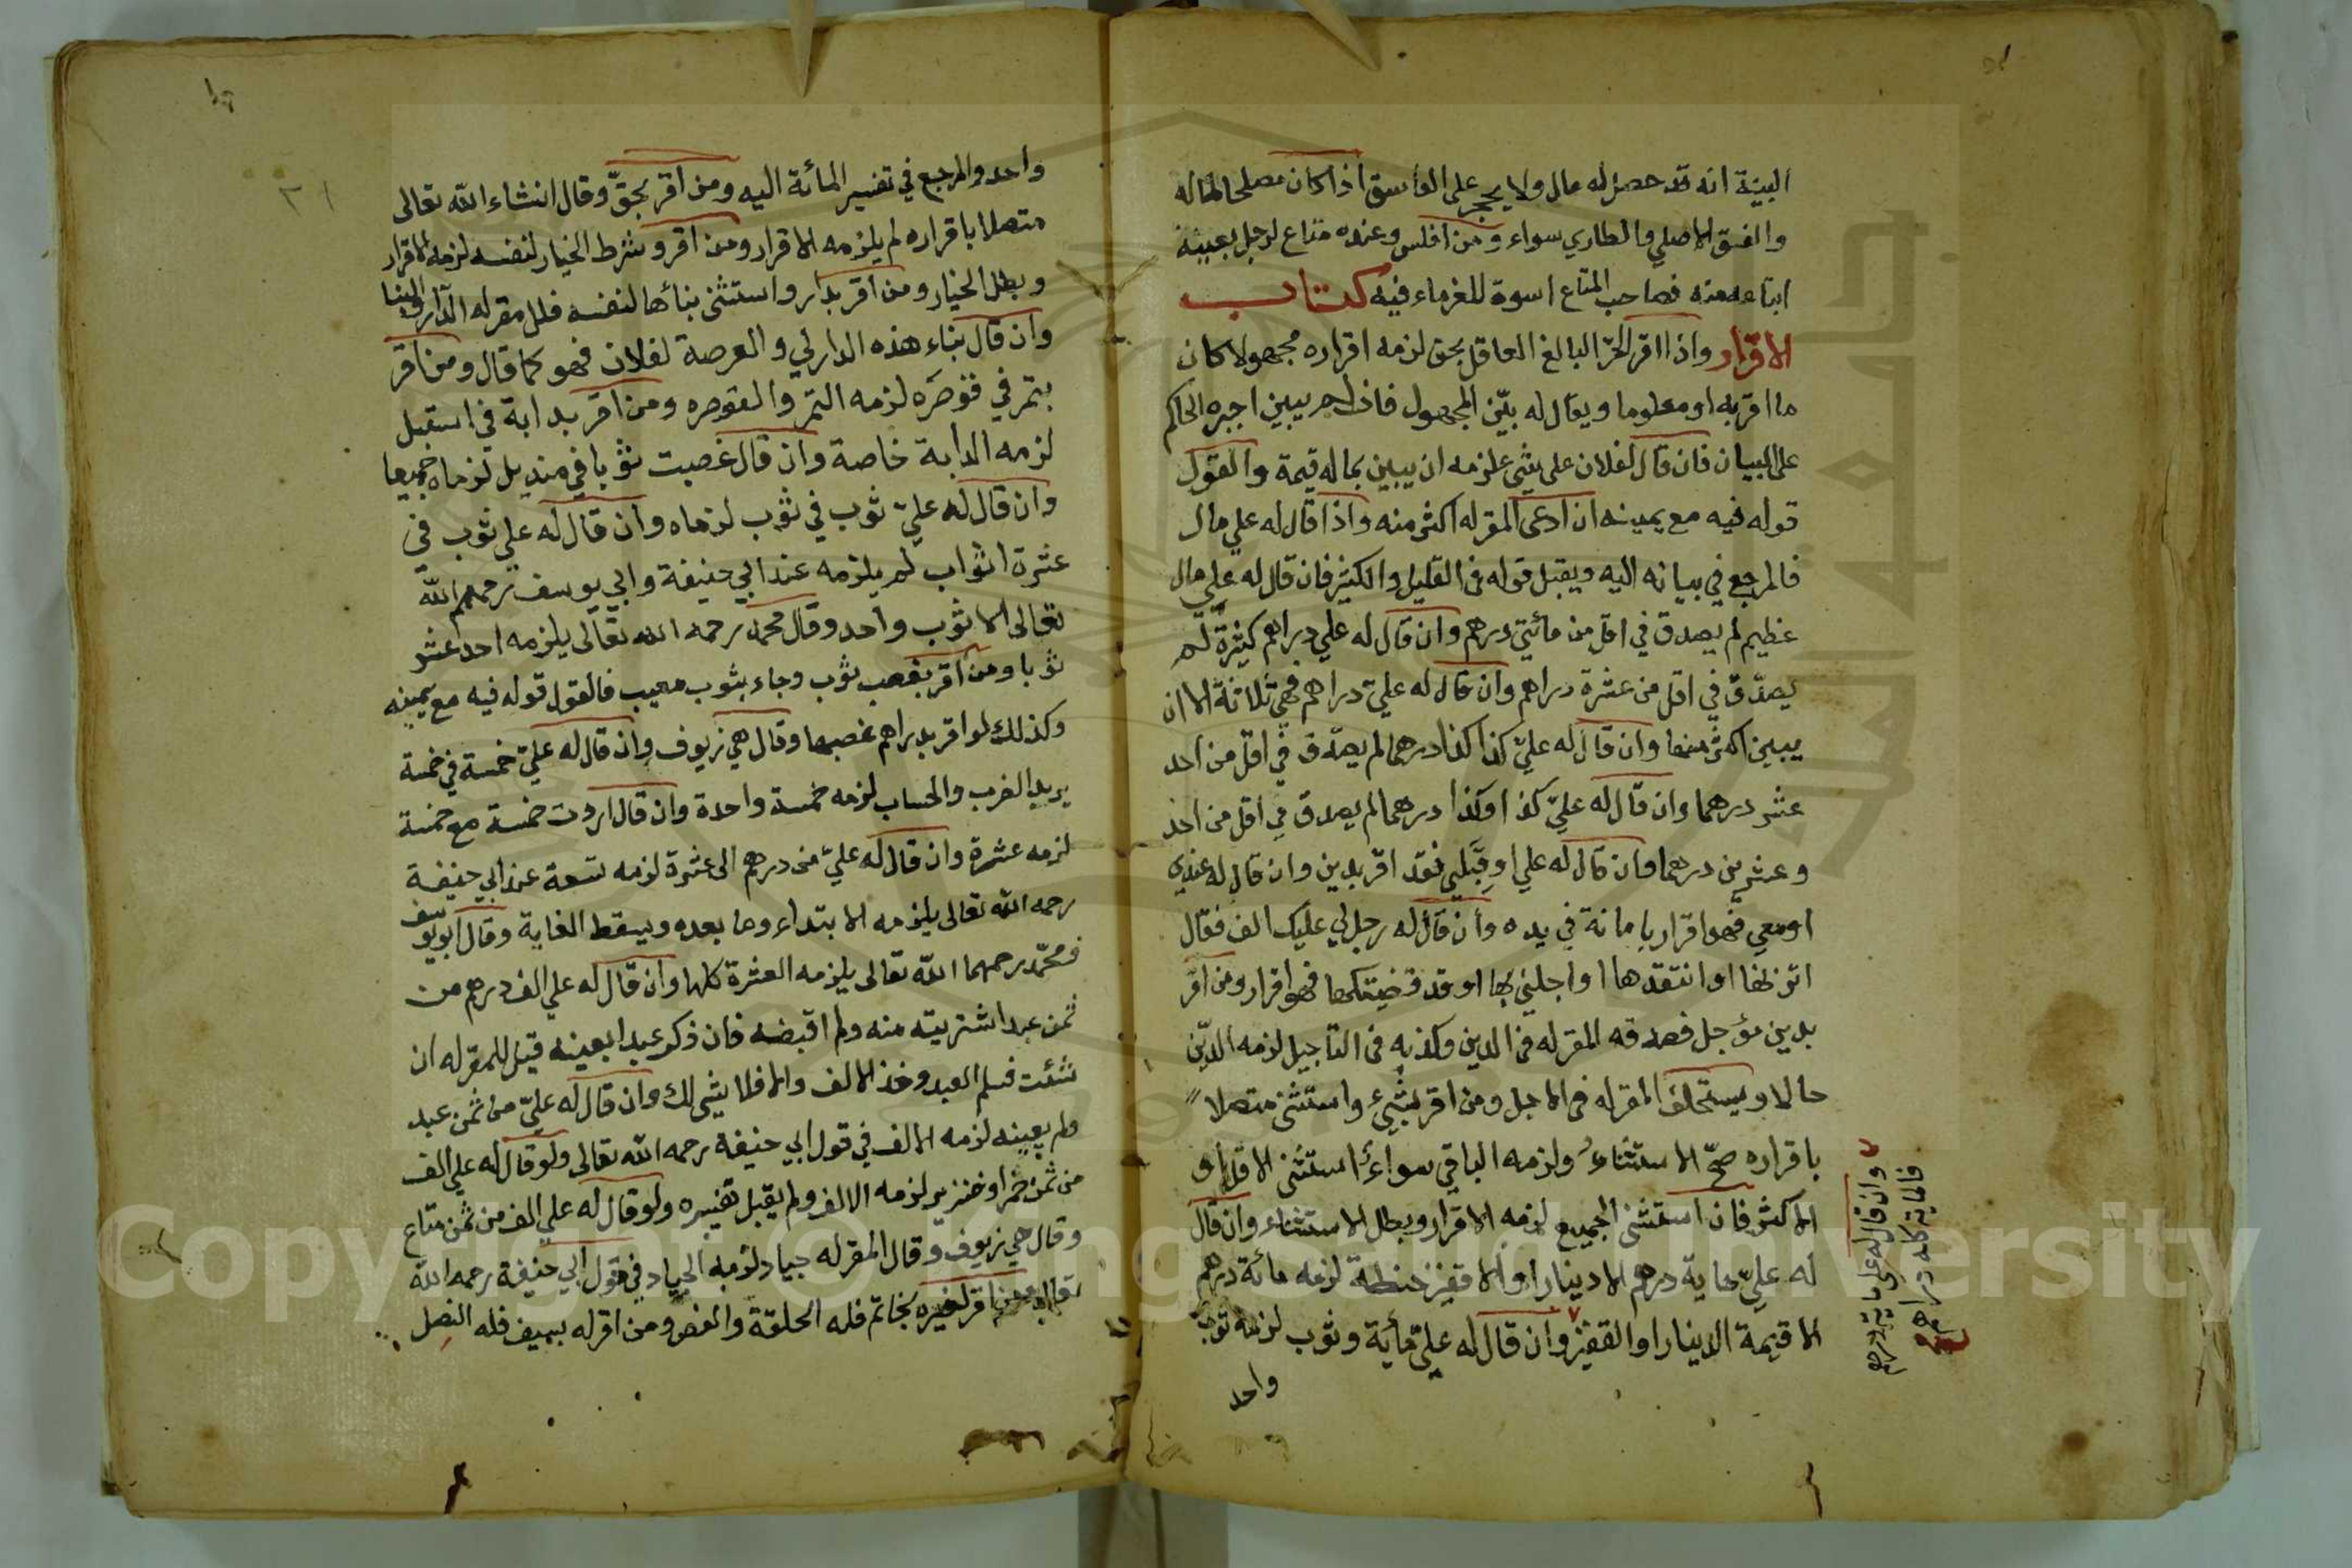 البينة انه قد حصل له مال ولا يحجر على الفاسق اذا كان مصلحا لماله
والفسق الاصلي والطاري سواء ومن افلس وعنده متاع لرجل بعينه
ابتاعه منه فصاحب المتاع اسوة للغرماء فيه كتاب
الاقرار واذا اقر الحر البالغ العاقل بحق لزمه اقراره مجهولا كان
ما اقر به او معلوما ويقال له بيّن المجهول فان لم يبين اجبره الحاكم
على البيان فان قال لفلان علي شئ لزمه ان يبين بماله قيمة والقول
قوله فيه مع يمينه ان ادعى المقر له اكثر منه واذا قال له علي مال
فالمرجع في بيانه اليه ويقبل قوله في القليل والكثير فان قال له علي مال
عظيم لم يصدق في اقل من مائتي درهم وان قال له علي دراهم كثيرة لم
يصدّق في اقل من عشرة دراهم وان قال له عليّ دراهم فهي ثلاثة الا ان
يبين اكثر منها وان قال له عليّ كذا كذا درهما لم يصدّق في اقل من احد
عشر درهما وان قال له عليّ كذا وكذا درهما لم يصدق في اقل من احد
وعشرين درهما وان قال له علي او قِبَلي فقد اقر بدين وان قال له عندي
او معي فهو اقرار بامانة في يده وان قال له رجل لي عليك الف فقال
اتزنها او انتقدها او اجلني بها او قد قضيتكها فهو اقرار ومن اقر
بدين مؤجل فصدقه المقر له في الدين وكذبه في التأجيل لزمه الدّين
حالا ويستحلف المقر له في الاجل ومن اقر بشيء واستثنى متصلا
باقراره صحّ الاستثناء ولزمه الباقي سواء استثنى الاقل او
الاكثر فان استثنى الجميع لزمه الاقرار وبطل الاستثناء وان قال
له عليّ ماية درهم الا دينارا او الا قفيز حنطة لزمه مائة درهم
الا قيمة الدينار او القفيز وان قال له عليّ مأية وثوب لزمه ثوب
واحد
وان قال له علي ماية ودرهم
فالماية كلها دراهم
واحد والمرجع في تفسير المائة اليه ومن اقر بحقّ وقال انشاء الله تعالى
متصلا باقراره لم يلزمه الاقرار ومن اقر وشرط الخيار لنفسه لزمه الاقرار
وبطل الخيار ومن اقر بدار واستثنى بنائها لنفسه فللمقر له الدار والبنا
وان قال بناء هذه الدار لي والعرصة لفلان فهو كما قال ومن اقر
بتمر في قوصره لزمه التمر والقوصره ومن اقر بدابة في اسطبل
لزمه الدابة خاصة وان قال غصبت ثوبا في منديل لزماه جميعا
وان قال له عليّ ثوب في ثوب لزماه وان قال له علي ثوب في
عشرة اثواب لم يلزمه عند ابي حنيفة وابي يوسف رحمهم الله
تعالى الا ثوب واحد وقال محمد رحمه الله تعالى يلزمه احد عشر
ثوبا ومن اقر بغصب ثوب وجاء بثوب معيب فالقول قوله فيه مع يمينه
وكذلك لو اقر بدراهم غصبها وقال هي زيوف وان قال له عليّ خمسة في خمسة
يريد الضرب والحساب لزمه خمسة واحدة وان قال اردت خمسة مع خمسة
لزمه عشرة وان قال له عليّ من درهم الى عشرة لزمه تسعة عند ابي حنيفة
رحمه الله تعالى يلزمه الابتداء وما بعده ويسقط الغاية وقال ابو يوسف
ومحمّد رحمهما الله تعالى يلزمه العشرة كلها وان قال له علي الف درهم من
ثمن عبد اشتريته منه ولم اقبضه فان ذكر عبدا بعينه قيل للمقر له ان
شئت فسلم العبد وخذ الالف والا فلا شئ لك وان قال له عليّ من ثمن عبد
ولم يعينه لزمه الالف في قول ابي حنيفة رحمه الله تعالى ولو قال له علي الف
من ثمن خمر او خنزير لزمه الالف ولم يقبل تفسيره ولو قال له علي الف من ثمن متاع
وقال هي زيوف وقال المقر له جياد لزمه الجياد في قول ابي حنيفة رحمه الله
تعالى ومن اقر لغيره بخاتم فله الحلقة والفص ومن اقر له بسيف فله النصل
Copyright © King Saud University